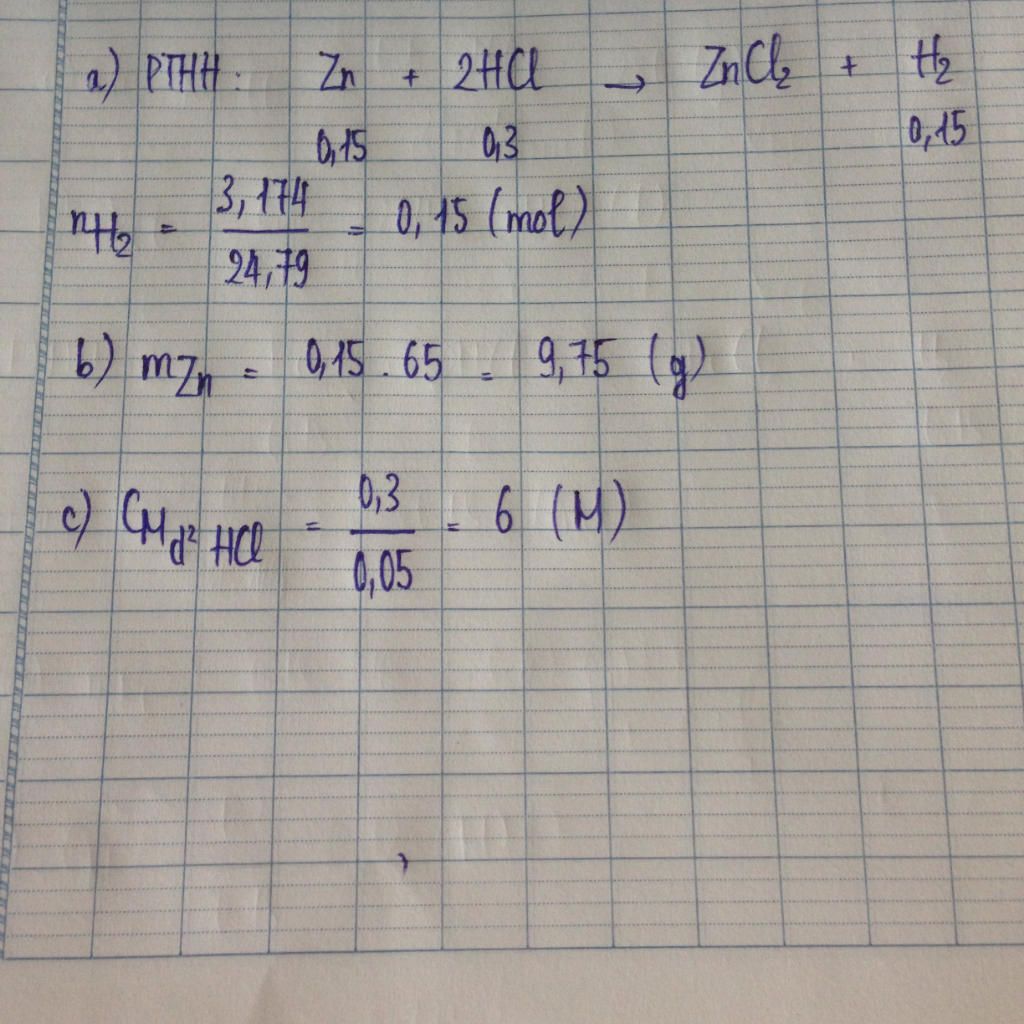 a) PTHH: Zn + 2HCl → ZnCl₂ + H₂
0,15 0,3 0,15
nH₂ = 3,174 / 24,79 = 0,15 (mol)
b) mZn = 0,15 . 65 = 9,75 (g)
c) CM d² HCl = 0,3 / 0,05 = 6 (M)